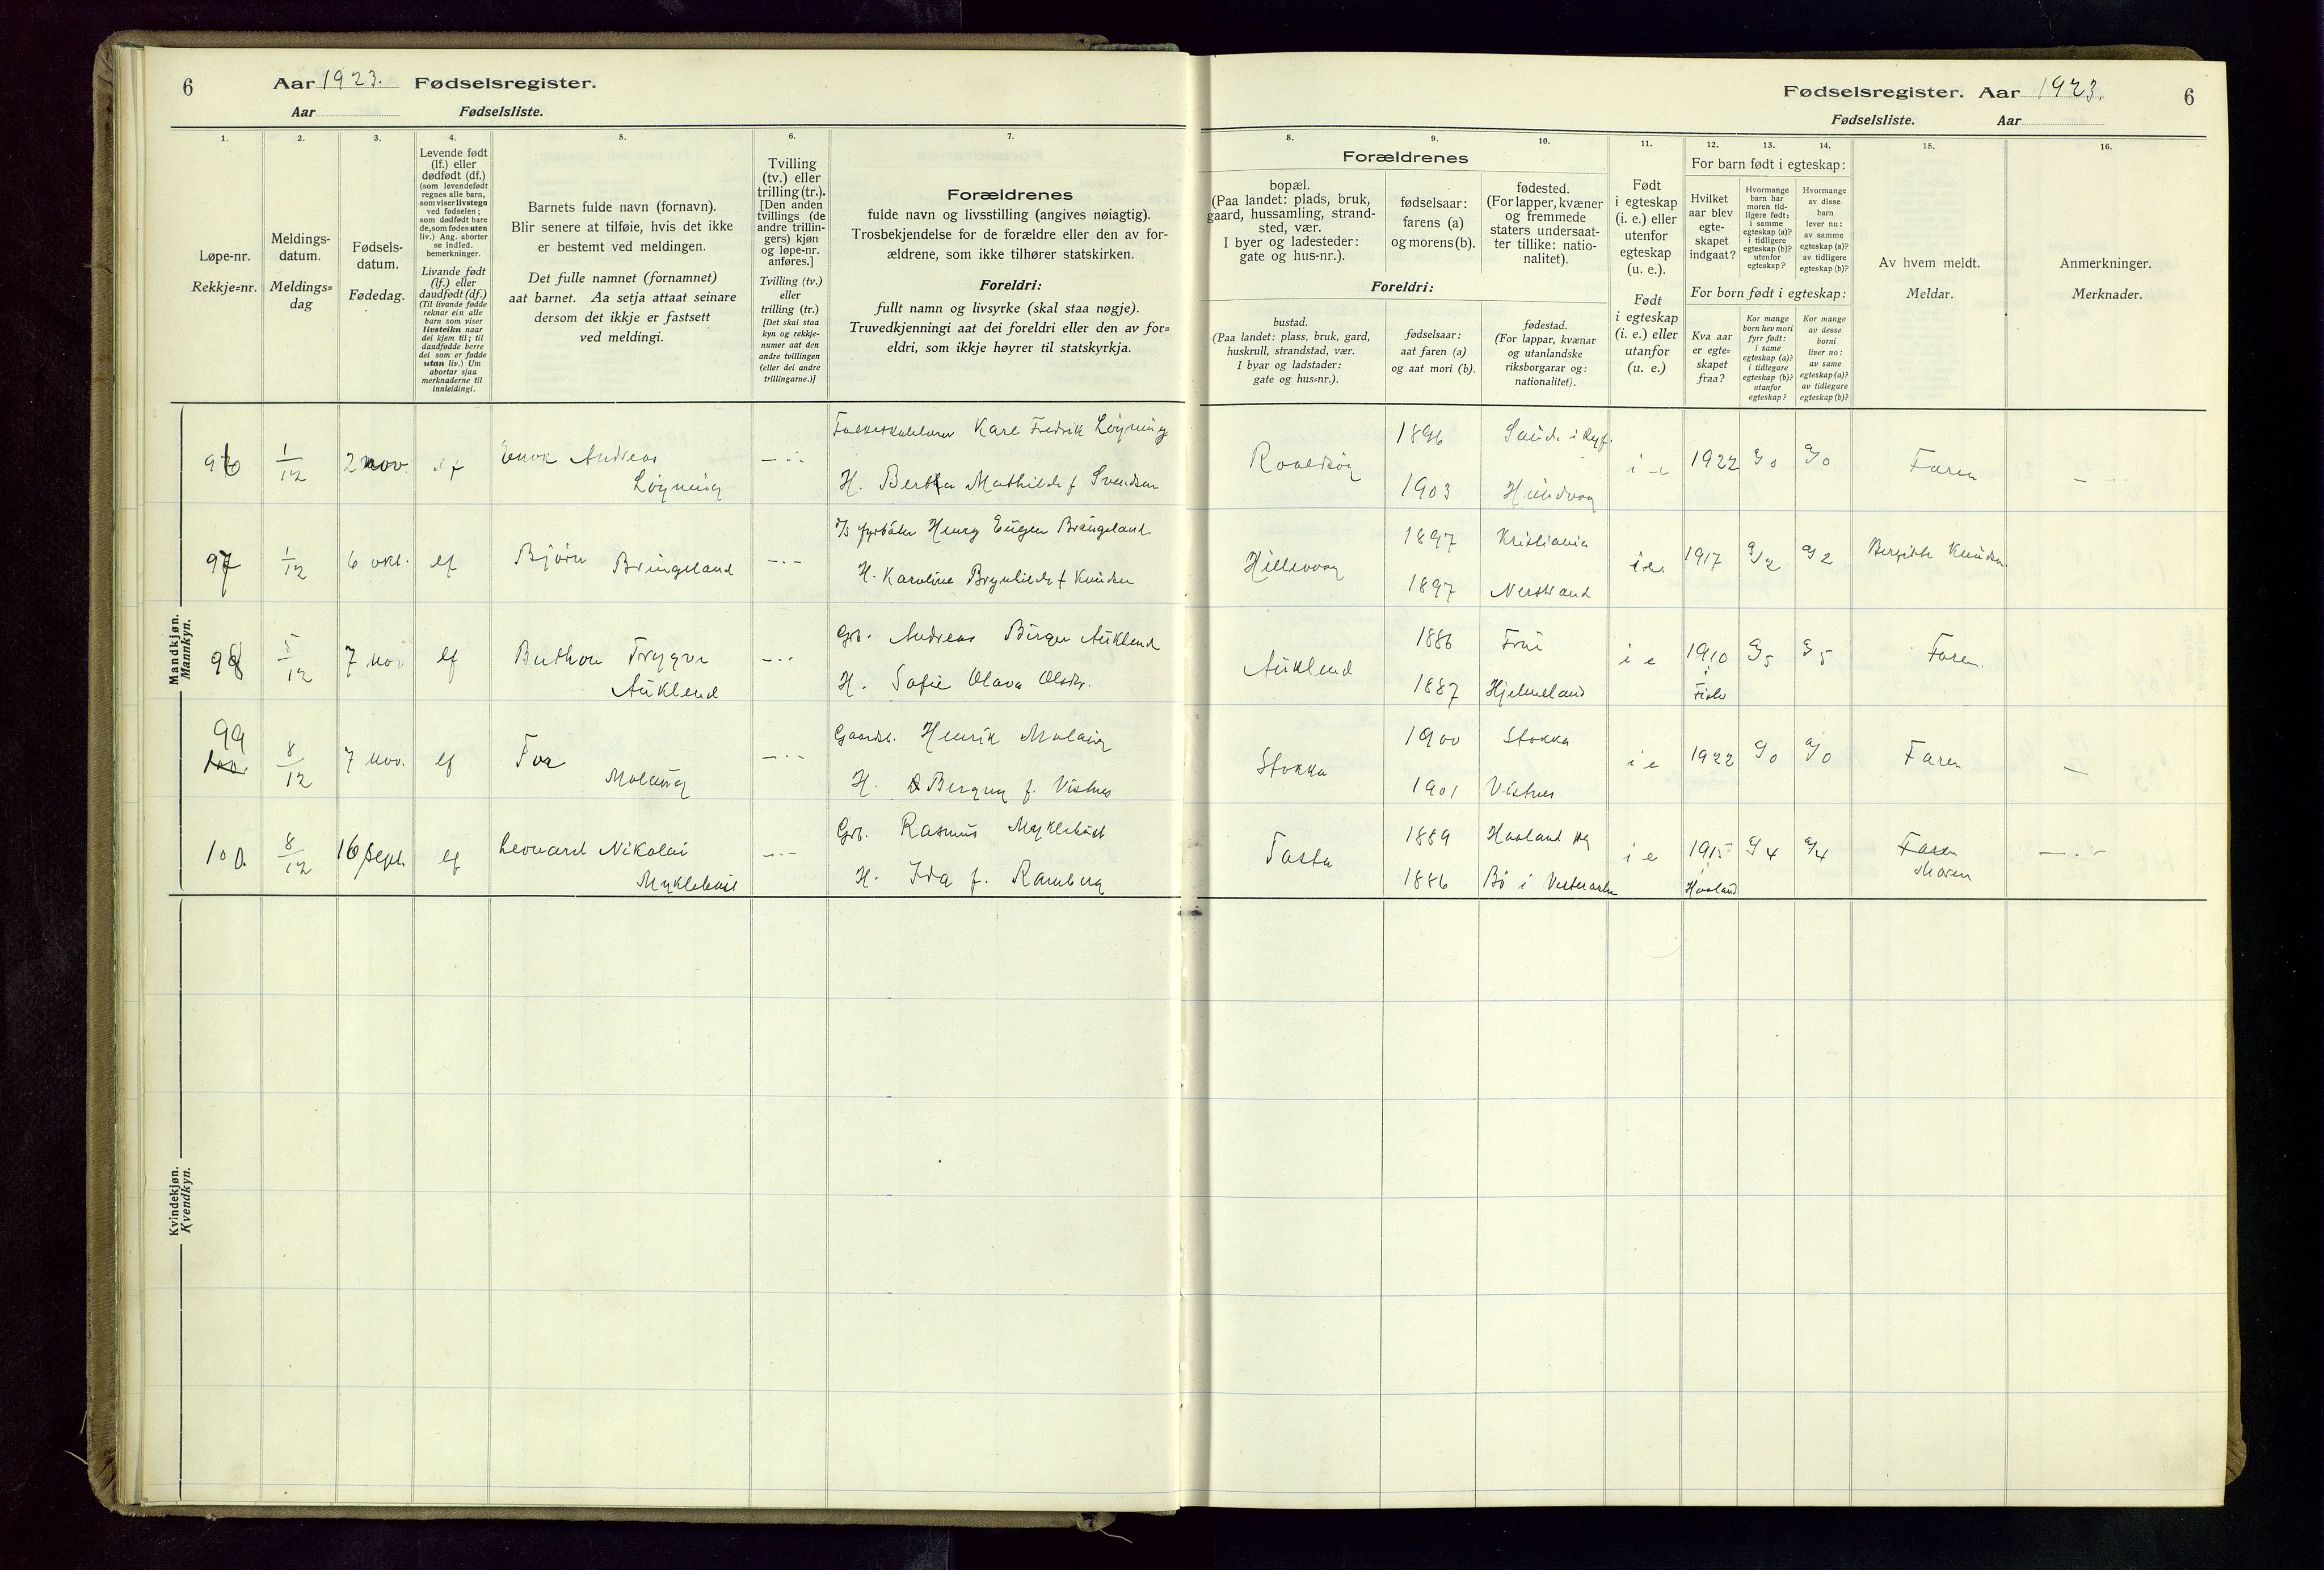 6 Aar 1923. Fødselsregister.
Aar Fødselsliste.
Fødselsregister. Aar 1923. 6
Fødselsliste. Aar
1. 2. 3. 4. 5. 6. 7.
Løpe-nr.
Rekkje=nr.
Meldings-
datum.
Meldings=
dag
Fødsels-
datum.
Fødedag.
Levende født
(lf.) eller
dødfødt (df.)
(som levendefødt
regnes alle barn,
som viser livstegn
ved fødselen;
som dødfødt bare
de, som fødes uten
liv.) Ang. aborter
se indled.
bemerkninger.
Livande født
(lf.) eller
daudfødt (df.)
(Til livande fødde
reknar ein alle
barn som viser
livsteikn naar
dei kjem til; til
daudfødde berre
dei som er fødde
utan liv.) Um
abortar sjaa
merknaderne til
innleidingi.
Barnets fulde navn (fornavn).
Blir senere at tilføie, hvis det ikke
er bestemt ved meldingen.
Det fulle namnet (fornamnet)
aat barnet. Aa setja attaat seinare
dersom det ikkje er fastsett
ved meldingi.
Tvilling
(tv.) eller
trilling (tr.).
[Den anden
tvillings (de
andre trillin-
gers) kjøn
og løpe-nr.
anføres.]
Tvilling (tv.)
eller
trilling (tr.)
[Det skal staa
kyn og rekkje-
numer aat den
andre tvillingen
(eller dei andre
trillingarne.)]
Forældrenes
fulde navn og livsstilling (angives nøiagtig).
Trosbekjendelse for de forældre eller den av for-
ældrene, som ikke tilhører statskirken.
Foreldri:
fullt namn og livsyrke (skal staa nøgje).
Truvedkjenningi aat dei foreldri eller den av for=
eldri, som ikkje høyrer til statskyrkja.
8. 9. 10. 11. 12. 13. 14. 15. 16.
Forældrenes
bopæl.
(Paa landet: plads, bruk,
gaard, hussamling, strand-
sted, vær.
I byer og ladesteder:
gate og hus-nr.).
fødselsaar:
farens (a)
og morens (b).
fødested.
(For lapper, kvæner
og fremmede
staters undersaat-
ter tillike: natio-
nalitet).
Foreldri:
bustad.
(Paa landet: plass, bruk, gard,
huskrull, strandstad, vær.
I byar og ladstader:
gate og hus=nr.).
fødselsaar:
aat faren (a)
og aat mori (b).
fødestad.
(For lappar, kvænar
og utanlandske
riksborgarar og:
nationalitet).
Født
i egteskap
(i. e.) eller
utenfor
egteskap
(u. e.).
Født
i egteskap
(i. e.) eller
utanfor
(u. e.)
For barn født i egteskap:
Hvilket
aar blev
egte-
skapet
indgaat?
Hvormange
barn har
moren tid-
ligere født:
i samme
egteskap (a)?
i tidligere
egteskap (b)?
utenfor
egteskap?
Hvormange
av disse
barn
lever nu:
av samme
egteskap (a)?
av tidligere
egteskap (b)?
For born født i egteskap:
Kva aar
er egte=
skapet
fraa?
Kor mange
born hev mori
fyrr født:
i same
egteskap (a)?
i tidlegare
egteskap (b)?
utanfor
egteskap?
Kor mange
av desse
borni
liver no:
av same
egteskap (a)?
av tidlegare
egteskap (b)?
Av hvem meldt.
Meldar.
Anmerkninger.
Merknader.
Mandkjøn.
Mannkyn.
96 1/12 2 nov. lf Enok Andreas Løyning
Karl Fredrik Løyning
H. Berta Mathilde f Svendsen
Roaldsøy 1896 Sande i Ryf.
1903 Hundvaag
i e 1922 a/0 a/0 Faren
97 1/12 6 okt. lf Bjørn Bringeland
Henry Eugen Bringeland
H. Karoline Brynhilde f Knudsen
Hillevaag 1897 Kristiania
1897 Nerstrand
i e. 1917 a/2 a/2 Bergitte Knudsen
98 5/12 7 nov. lf Trygve Auklend
Grb. Andreas Birger Auklend
H. Sofie Olava Olsdtr.
Auklend 1886
1887 Hjelmeland
i e 1910 a/5 a/5 Faren.
99 100. 8/12 7 nov. lf Tor Molaug
Gaardbr. Henrik Molaug
H. Bergny f. Vistnes
Stokka 1900 Stokka
1901 Vistnes
i e 1922 a/0 a/0 Faren
100. 8/12 16 Sept. lf Leonard Nikolai Myklebust
Grb. Rasmus Myklebust
H. Ida f. Ramberg
Tasta 1889 Haaland
1886 Bø i Vesteraalen
i e 1915 i Haaland a/4 a/4 Faren
Moren
Kvindekjøn.
Kvendkyn.